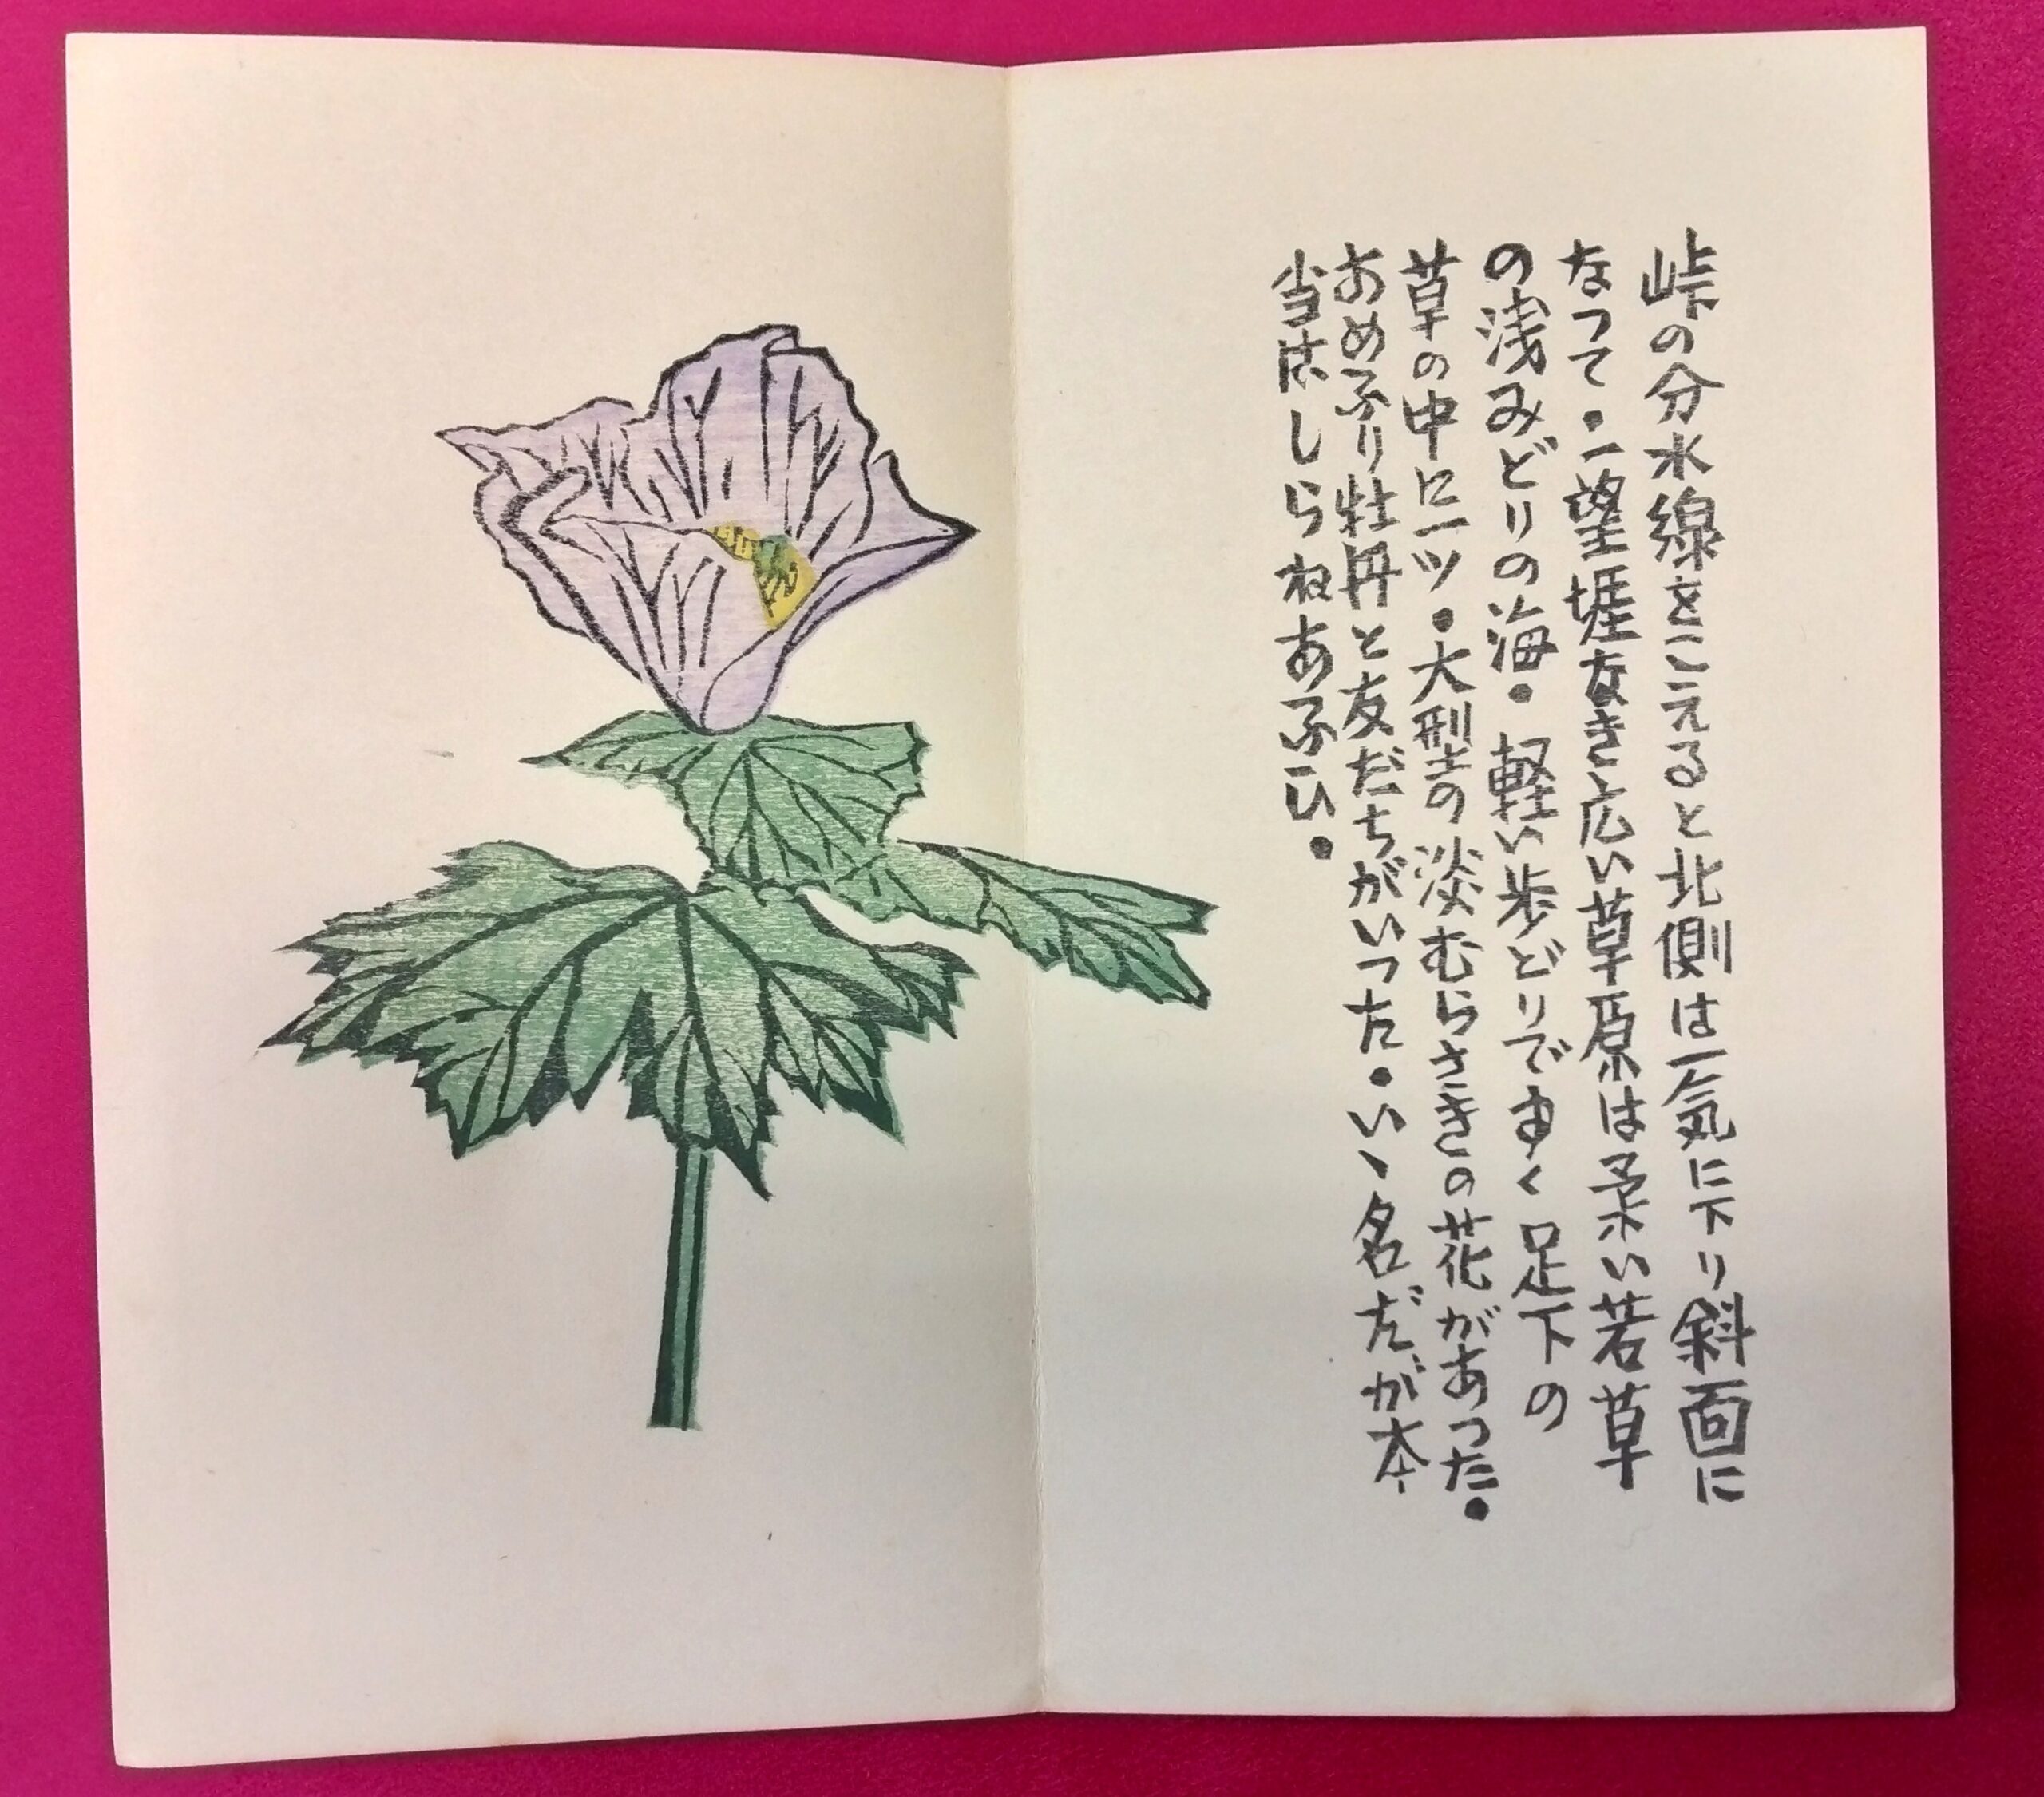 峠の分水線をこえると北側は一気に下り斜面に
なって・一望涯なき広い草原は柔い若草
の浅みどりの海・軽い歩どりでゆく足下の
草の中に一ツ・大型の淡むらさきの花があった・
あめふり牡丹と友だちがいった・いゝ名だが本
当はしらねあふひ・